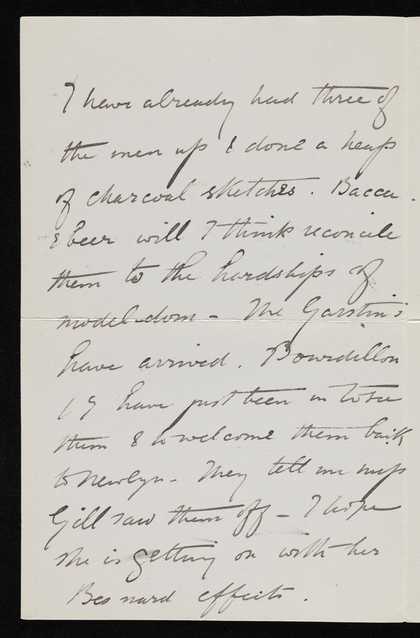 I have already had three of
the men up & done a heap
of charcoal sketches. Bacca
& beer will I think reconcile
them to the hardships of
model-dom - The Garstin's
have arrived. Bourdillon
& I have just been in to see
them & to welcome them back
to Newlyn - They tell me Miss
Gill saw them off - I hope
she is getting on with her
Besnard effects.